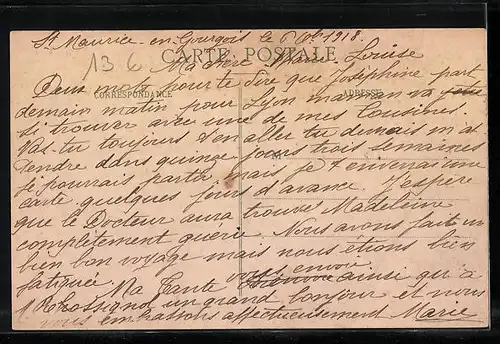 St Maurice en Gourgois le 6 1918
CARTE POSTALE
136
Ma chère Marie Louise
Deux mots pour te dire que Joséphine part
CORRESPONDANCE
ADRESSE
demain matin pour Lyon maman va
se trouver avec une de mes cousines.
Vas-tu toujours t'en aller tu devrais m'at
tendre dans quinze jours trois semaines
je pourrais partir mais je t'enverrai une
carte quelques jours d'avance. J'espère
que le Docteur aura trouvé Madeleine
complètement guérie. Nous avons fait un
bien bon voyage mais nous étions bien
fatiguée. Ma Tante vous envoi ainsi qu'à
un grand bonjour et nous
vous embrassons affectueusement Marie